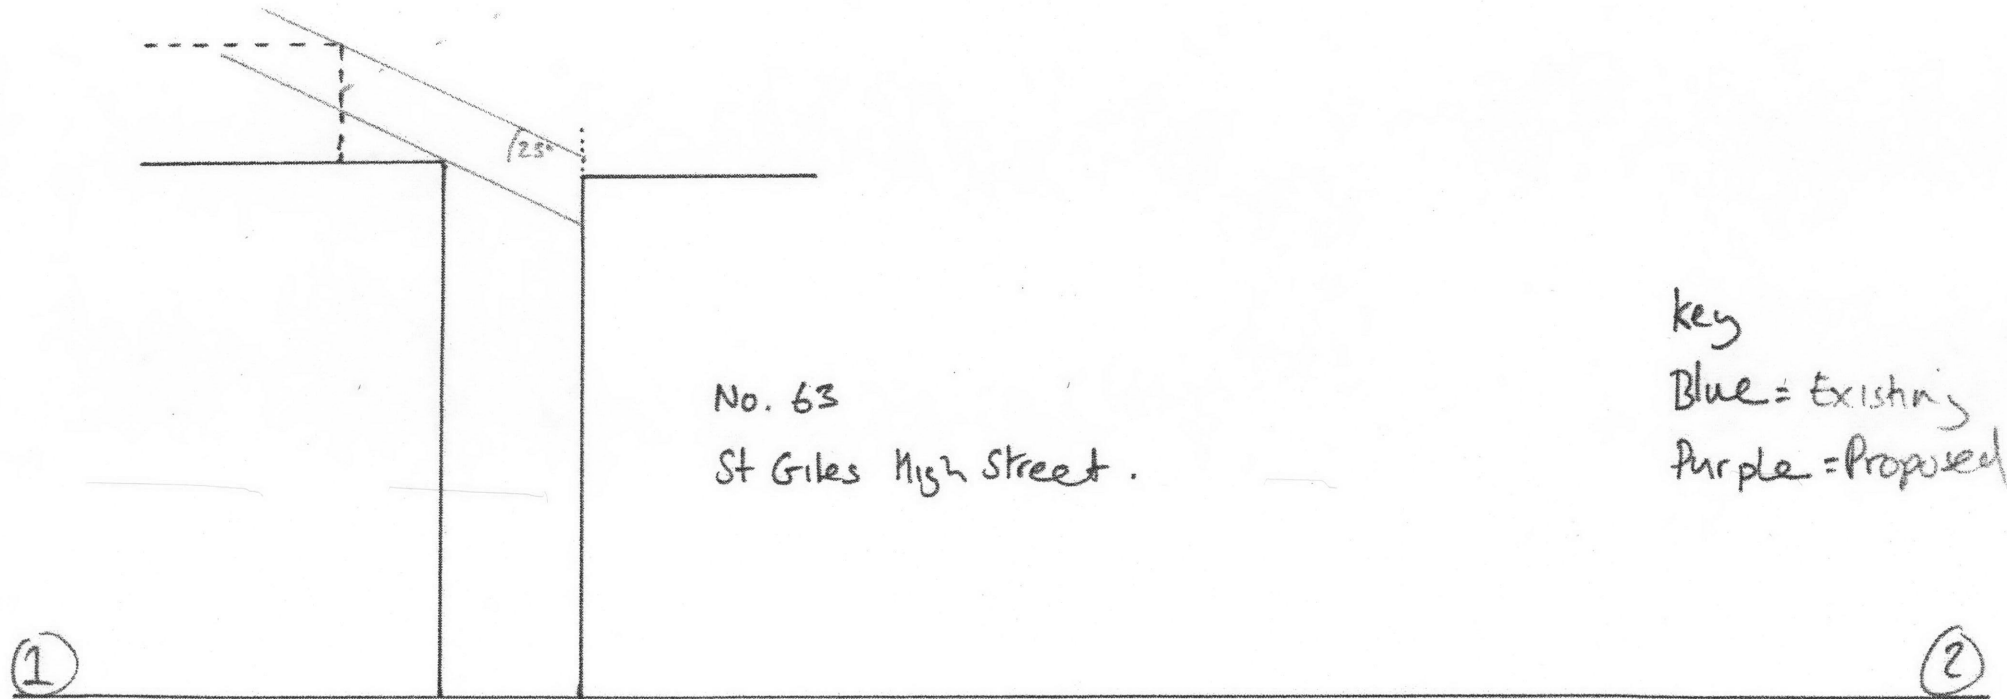 23°
No. 63
St Giles High Street.
key
Blue = Existing
Purple = Proposed
1
2